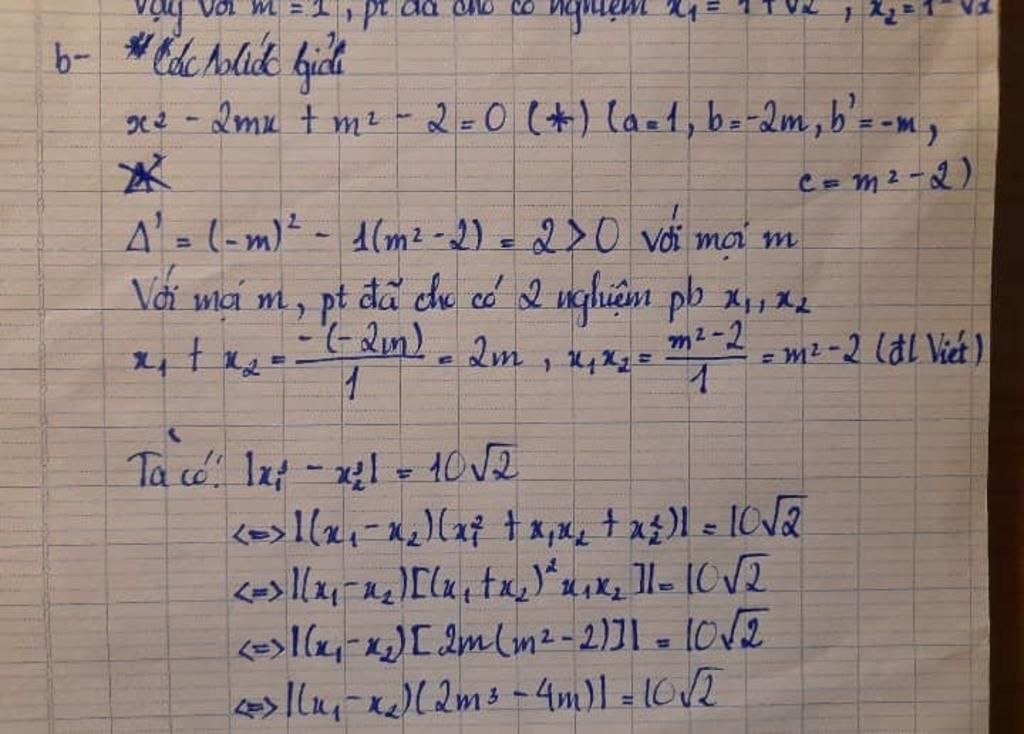 Vậy với m = 1, pt đã cho có nghiệm x₁ = 1 + √2, x₂ = 1 - √2
b- * Các bước giải
x² - 2mx + m² - 2 = 0 (*) (a = 1, b = -2m, b' = -m,
c = m² - 2)
Δ' = (-m)² - 1(m² - 2) = 2 > 0 với mọi m
Với mọi m, pt đã cho có 2 nghiệm pb x₁, x₂
x₁ + x₂ = -(-2m)/1 = 2m, x₁x₂ = (m² - 2)/1 = m² - 2 (đl Viét)
Ta có: |x₁³ - x₂³| = 10√2
<=> |(x₁ - x₂)(x₁² + x₁x₂ + x₂²)| = 10√2
<=> |(x₁ - x₂)[(x₁ + x₂)² x₁x₂]| = 10√2
<=> |(x₁ - x₂)[2m(m² - 2)]| = 10√2
<=> |(x₁ - x₂)(2m³ - 4m)| = 10√2